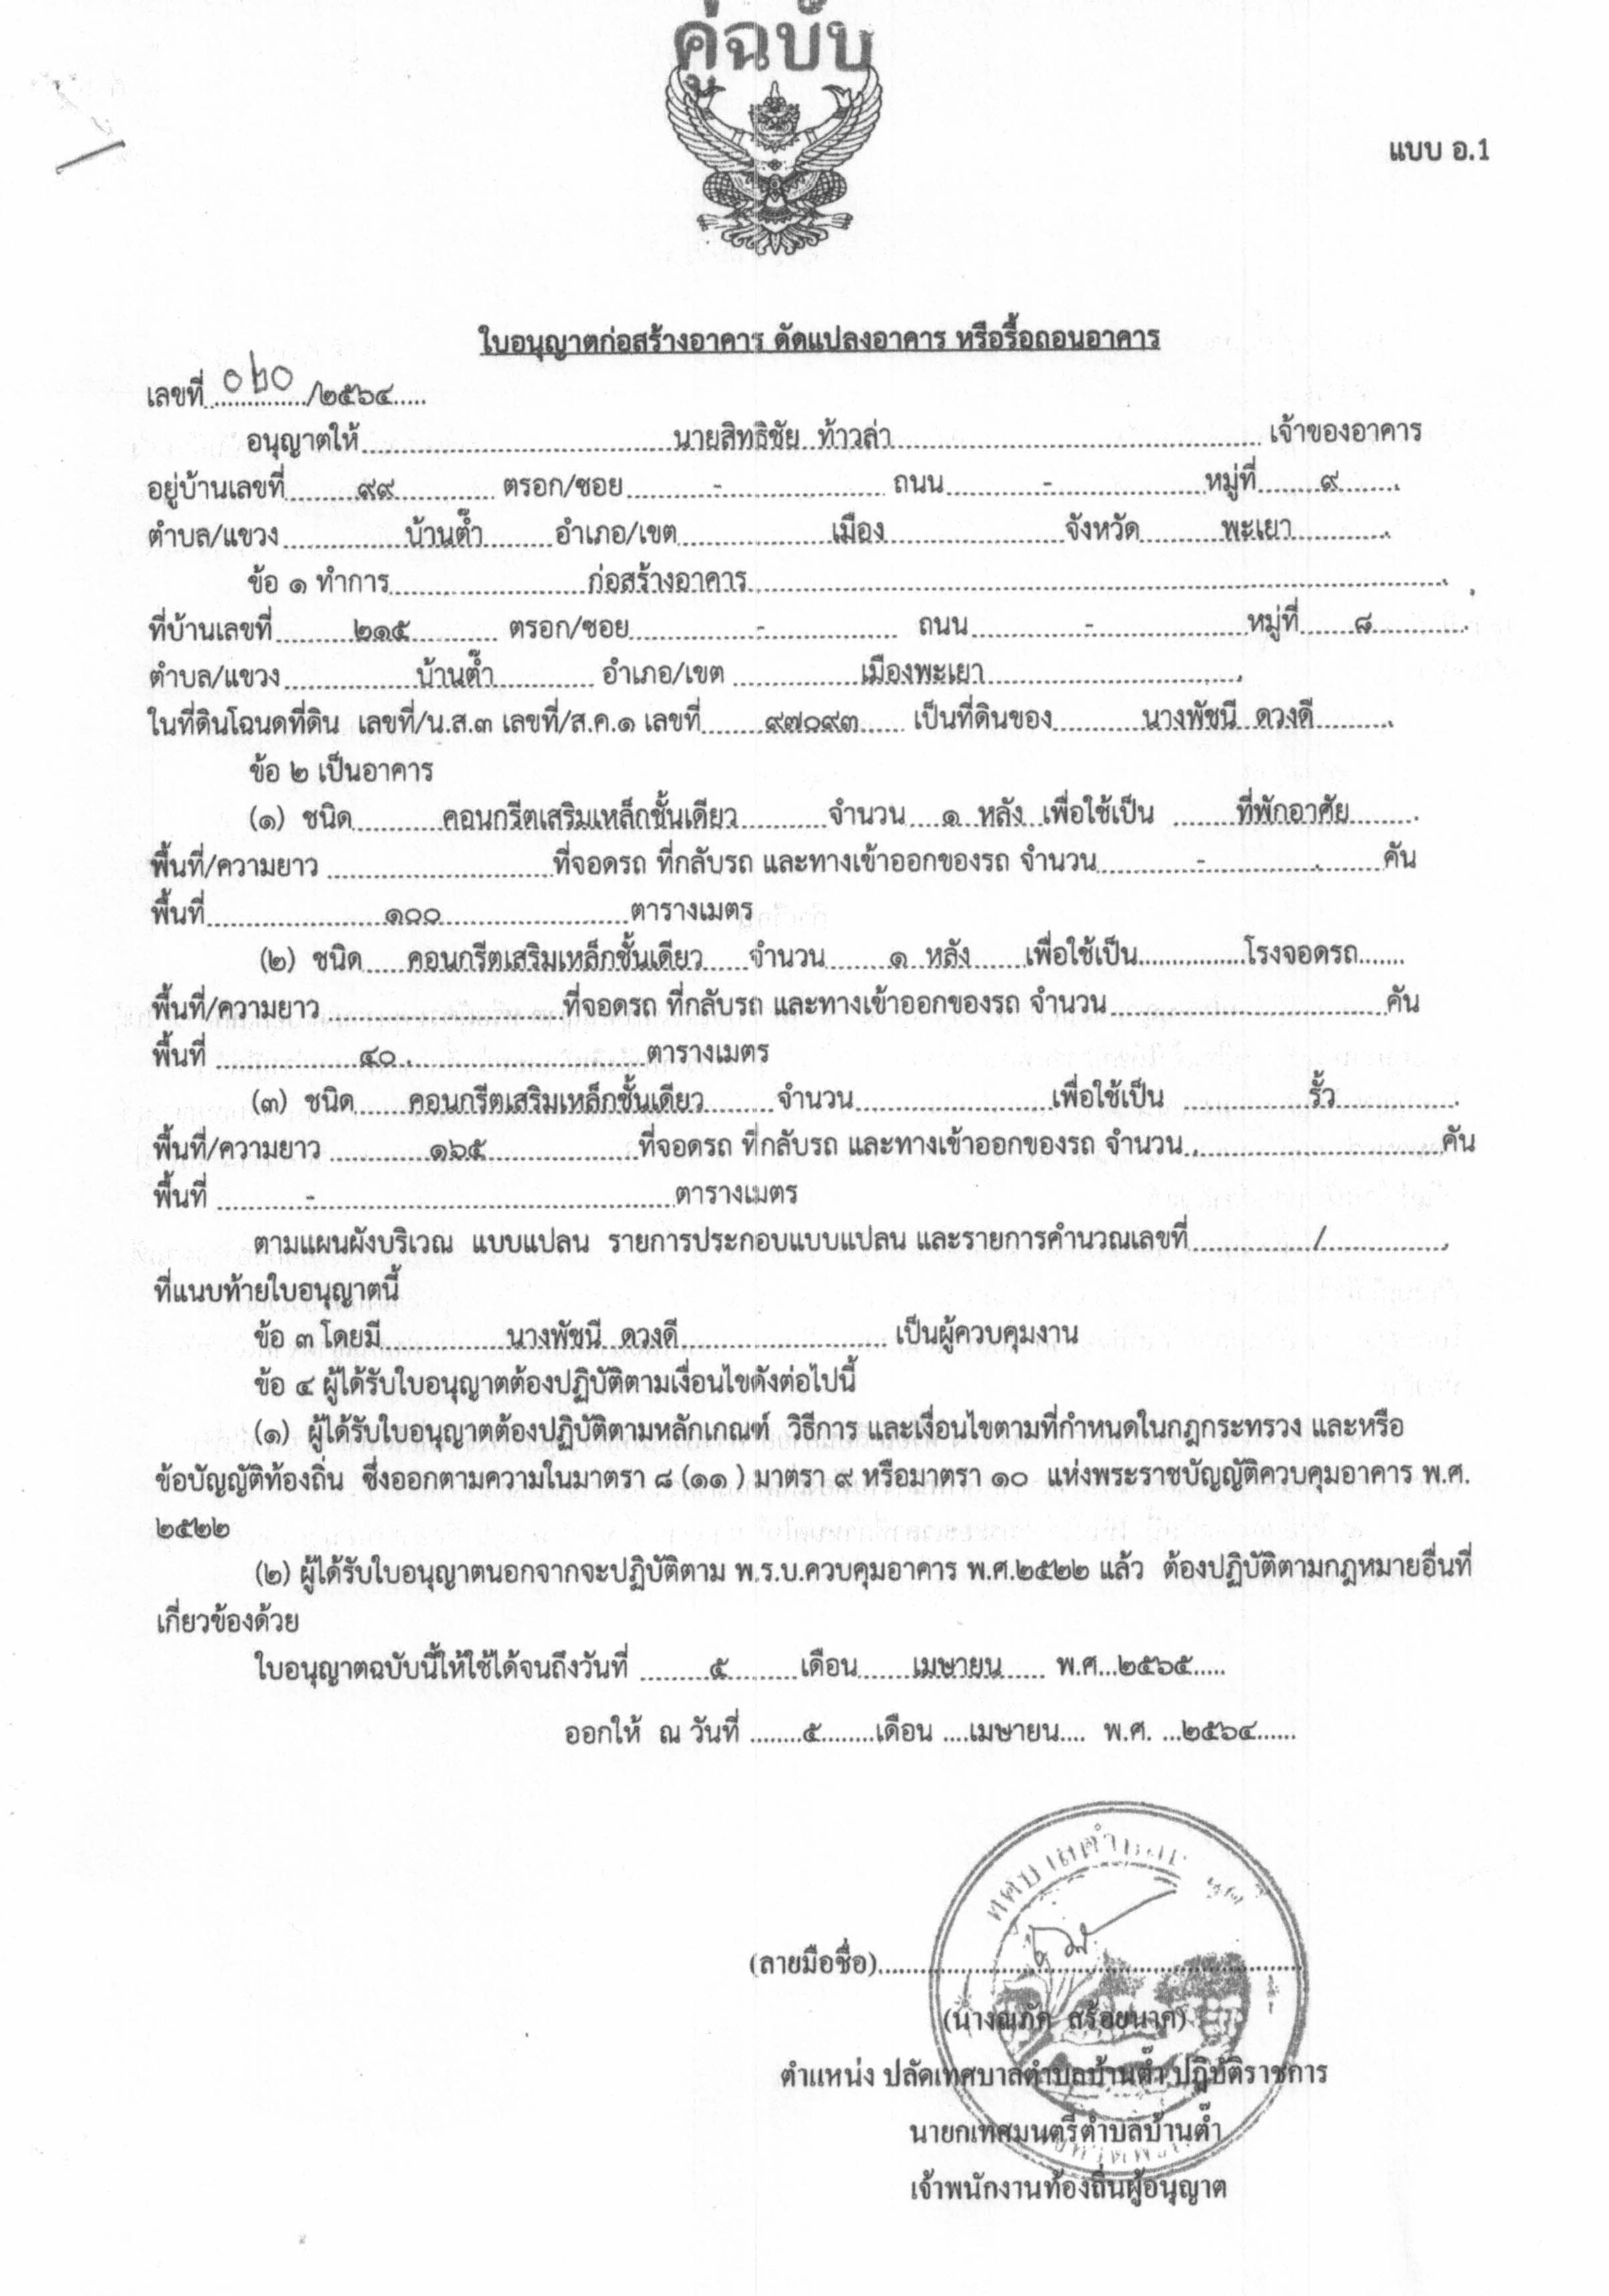 คู่ฉบับ
แบบ อ.1
ใบอนุญาตก่อสร้างอาคาร ดัดแปลงอาคาร หรือรื้อถอนอาคาร
เลขที่ ๐๒๐ /๒๕๖๔.....
อนุญาตให้ นายสิทธิชัย ท้าวล่า เจ้าของอาคาร
อยู่บ้านเลขที่ ๙๙ ตรอก/ซอย - ถนน - หมู่ที่ ๙
ตำบล/แขวง บ้านต๊ำ อำเภอ/เขต เมือง จังหวัด พะเยา
ข้อ ๑ ทำการ ก่อสร้างอาคาร
ที่บ้านเลขที่ ๒๑๕ ตรอก/ซอย - ถนน - หมู่ที่ ๘
ตำบล/แขวง บ้านต๊ำ อำเภอ/เขต เมืองพะเยา
ในที่ดินโฉนดที่ดิน เลขที่/น.ส.๓ เลขที่/ส.ค.๑ เลขที่ ๙๗๐๙๓ เป็นที่ดินของ นางพัชนี ดวงดี
ข้อ ๒ เป็นอาคาร
(๑) ชนิด คอนกรีตเสริมเหล็กชั้นเดียว จำนวน ๑ หลัง เพื่อใช้เป็น ที่พักอาศัย
พื้นที่/ความยาว ที่จอดรถ ที่กลับรถ และทางเข้าออกของรถ จำนวน - คัน
พื้นที่ ๑๐๐ ตารางเมตร
(๒) ชนิด คอนกรีตเสริมเหล็กชั้นเดียว จำนวน ๑ หลัง เพื่อใช้เป็น โรงจอดรถ
พื้นที่/ความยาว ที่จอดรถ ที่กลับรถ และทางเข้าออกของรถ จำนวน คัน
พื้นที่ ๔๐ ตารางเมตร
(๓) ชนิด คอนกรีตเสริมเหล็กชั้นเดียว จำนวน เพื่อใช้เป็น รั้ว
พื้นที่/ความยาว ๑๖๕ ที่จอดรถ ที่กลับรถ และทางเข้าออกของรถ จำนวน คัน
พื้นที่ - ตารางเมตร
ตามแผนผังบริเวณ แบบแปลน รายการประกอบแบบแปลน และรายการคำนวณเลขที่ /
ที่แนบท้ายใบอนุญาตนี้
ข้อ ๓ โดยมี นางพัชนี ดวงดี เป็นผู้ควบคุมงาน
ข้อ ๔ ผู้ได้รับใบอนุญาตต้องปฏิบัติตามเงื่อนไขดังต่อไปนี้
(๑) ผู้ได้รับใบอนุญาตต้องปฏิบัติตามหลักเกณฑ์ วิธีการ และเงื่อนไขตามที่กำหนดในกฎกระทรวง และหรือ
ข้อบัญญัติท้องถิ่น ซึ่งออกตามความในมาตรา ๘ (๑๑ ) มาตรา ๙ หรือมาตรา ๑๐ แห่งพระราชบัญญัติควบคุมอาคาร พ.ศ.
๒๕๒๒
(๒) ผู้ได้รับใบอนุญาตนอกจากจะปฏิบัติตาม พ.ร.บ.ควบคุมอาคาร พ.ศ.๒๕๒๒ แล้ว ต้องปฏิบัติตามกฎหมายอื่นที่
เกี่ยวข้องด้วย
ใบอนุญาตฉบับนี้ให้ใช้ได้จนถึงวันที่ ๕ เดือน เมษายน พ.ศ. ๒๕๖๕
ออกให้ ณ วันที่ ๕ เดือน เมษายน พ.ศ. ๒๕๖๔
(ลายมือชื่อ)
(นางณภัค สร้อยนาค)
ตำแหน่ง ปลัดเทศบาลตำบลบ้านต๊ำ ปฏิบัติราชการ
นายกเทศมนตรีตำบลบ้านต๊ำ
เจ้าพนักงานท้องถิ่นผู้อนุญาต